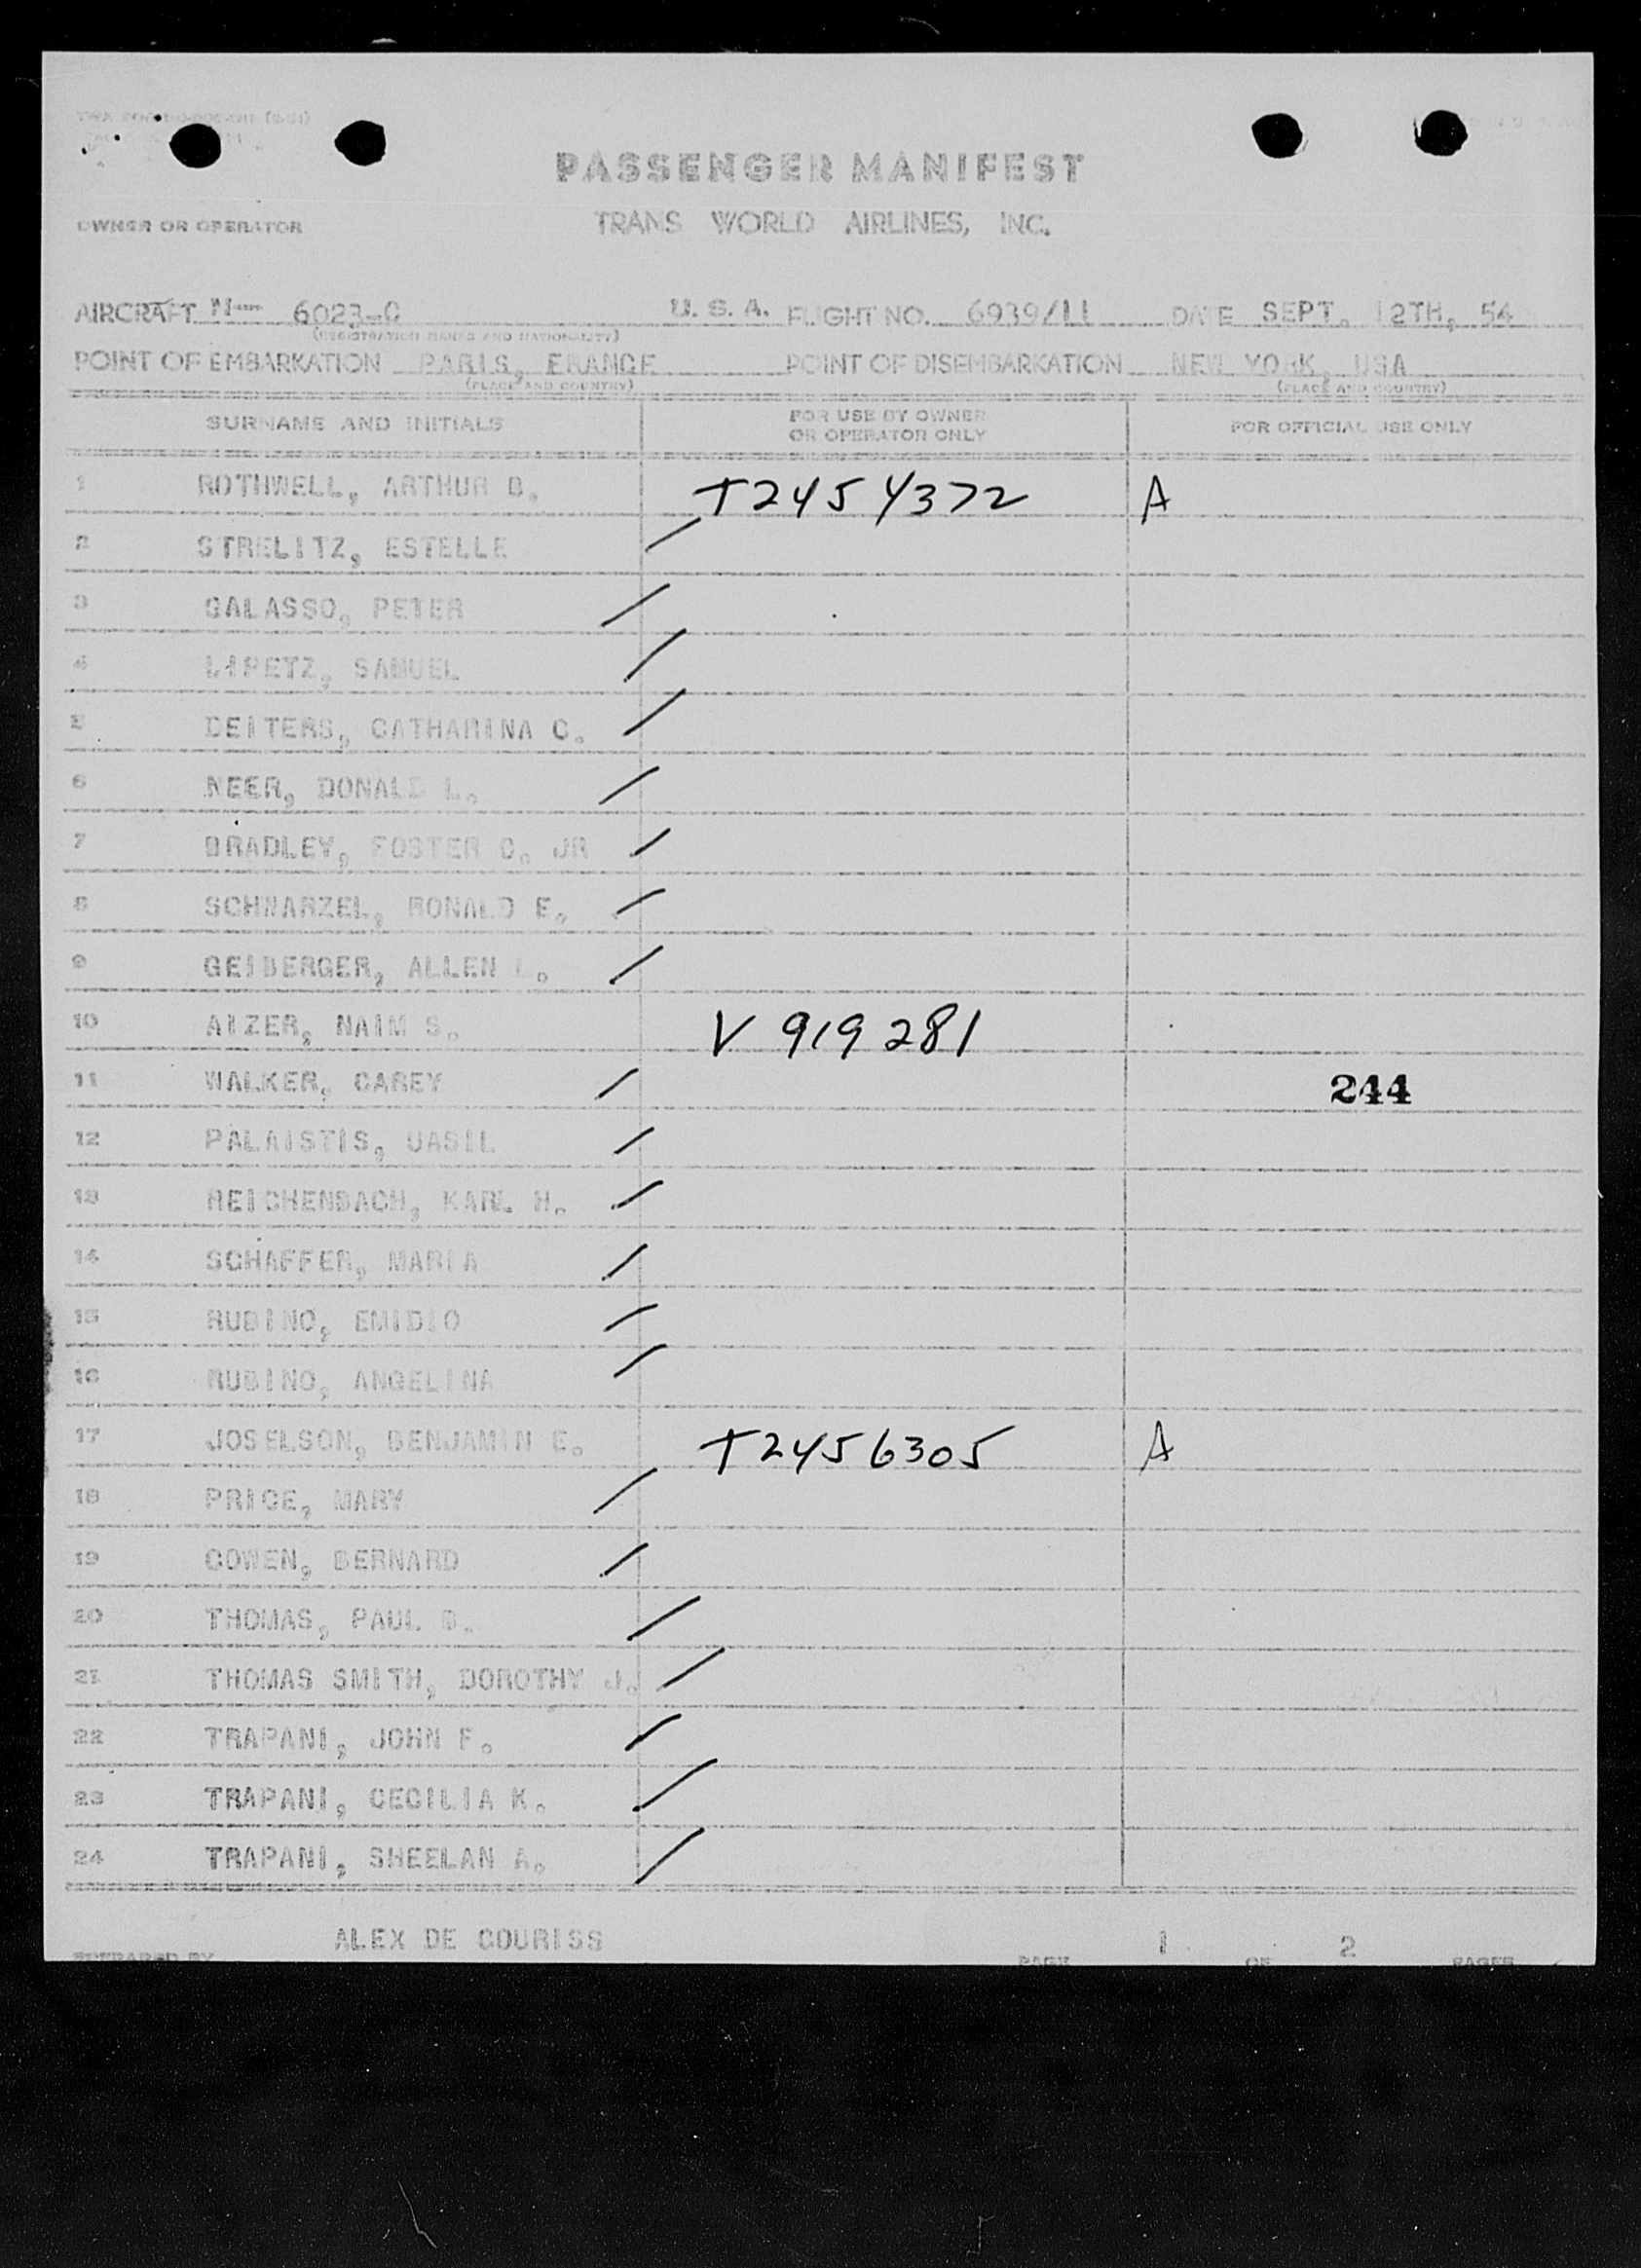 PASSENGER MANIFEST
OWNER OR OPERATOR TRANS WORLD AIRLINES, INC.
AIRCRAFT N— 6023-C U. S. A. FLIGHT NO. 6939/11 DATE SEPT. 12TH, 54
(REGISTRATION MARKS AND NATIONALITY)
POINT OF EMBARKATION PARIS, FRANCE POINT OF DISEMBARKATION NEW YORK, USA
(PLACE AND COUNTRY) (PLACE AND COUNTRY)
SURNAME AND INITIALS FOR USE BY OWNER OR OPERATOR ONLY FOR OFFICIAL USE ONLY
1 ROTHWELL, ARTHUR B. T2454372 A
2 STRELITZ, ESTELLE /
3 GALASSO, PETER /
4 LIPETZ, SAMUEL /
5 DEITERS, CATHARINA C. /
6 NEER, DONALD L. /
7 BRADLEY, FOSTER C. JR /
8 SCHWARZEL, RONALD E. /
9 GEIBERGER, ALLEN L. /
10 AIZER, NAIM S. V 919281
11 WALKER, CAREY / 244
12 PALAISTIS, VASIL /
13 REICHENBACH, KARL H. /
14 SCHAFFER, MARIA /
15 RUBINO, EMIDIO /
16 RUBINO, ANGELINA /
17 JOSELSON, BENJAMIN E. T2456305 A
18 PRICE, MARY /
19 COWEN, BERNARD /
20 THOMAS, PAUL B. /
21 THOMAS SMITH, DOROTHY J. /
22 TRAPANI, JOHN F. /
23 TRAPANI, CECILIA K. /
24 TRAPANI, SHEELAN A. /
ALEX DE COURISS
PREPARED BY PAGE 1 OF 2 PAGES